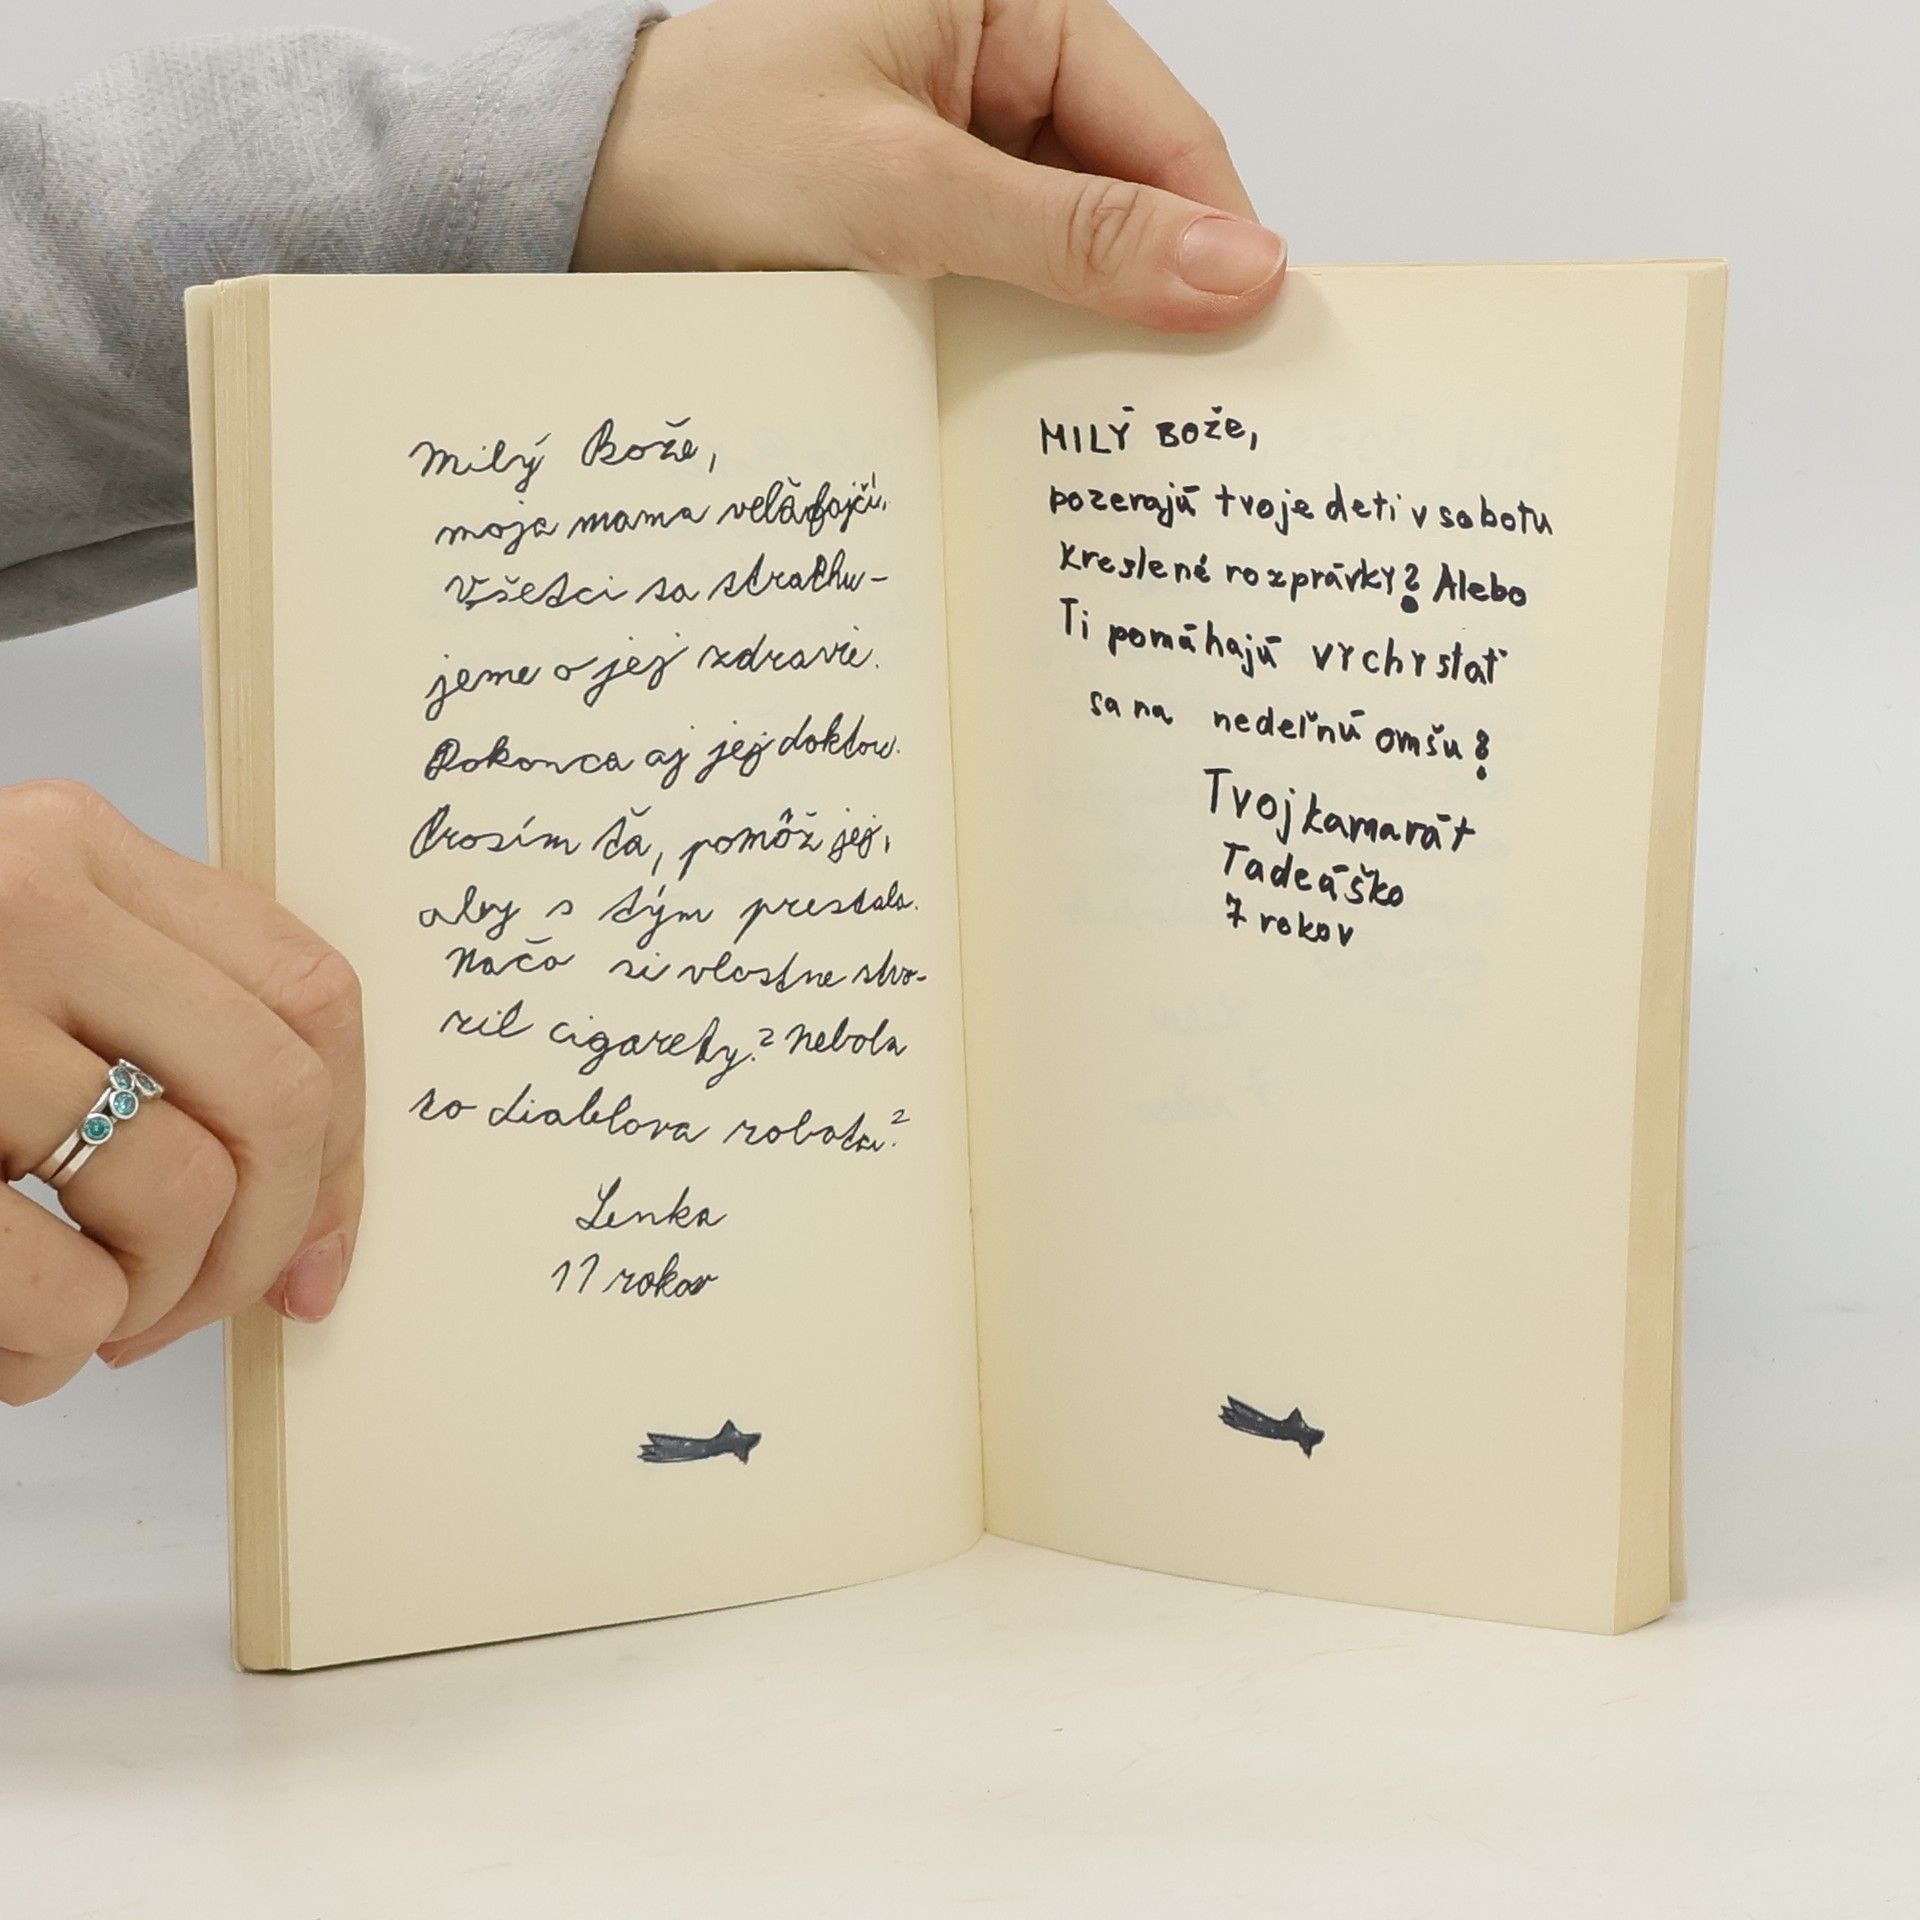 Milý Bože,
moja mama veľa fajčí.
Všetci sa strachu-
jeme o jej zdravie.
Dokonca aj jej doktor.
Prosím ťa, pomôž jej,
aby s tým prestala.
Načo si vlastne stvo-
ril cigarety? Nebola
to diablova robota?
Lenka
11 rokov
MILÝ BOžE,
pozerajú tvoje deti v sobotu
kreslené rozprávky? Alebo
Ti pomáhajú vychystať
sa na nedeľnú omšu?
Tvoj kamarát
Tadeáško
7 rokov